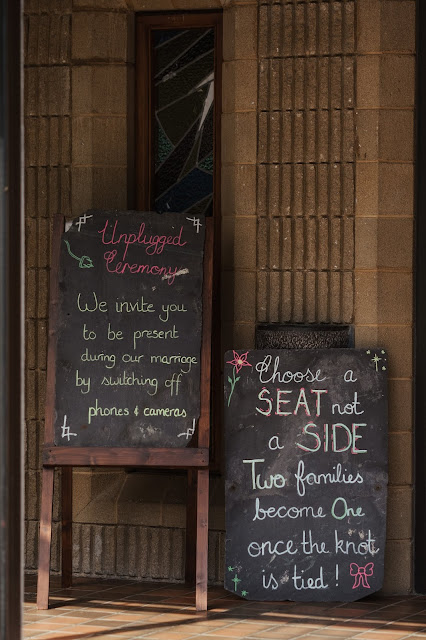 Unplugged
Ceremony
We invite you
to be present
during our marriage
by switching off
phones & cameras
Choose a
SEAT not
a SIDE
Two families
become One
once the knot
is tied!